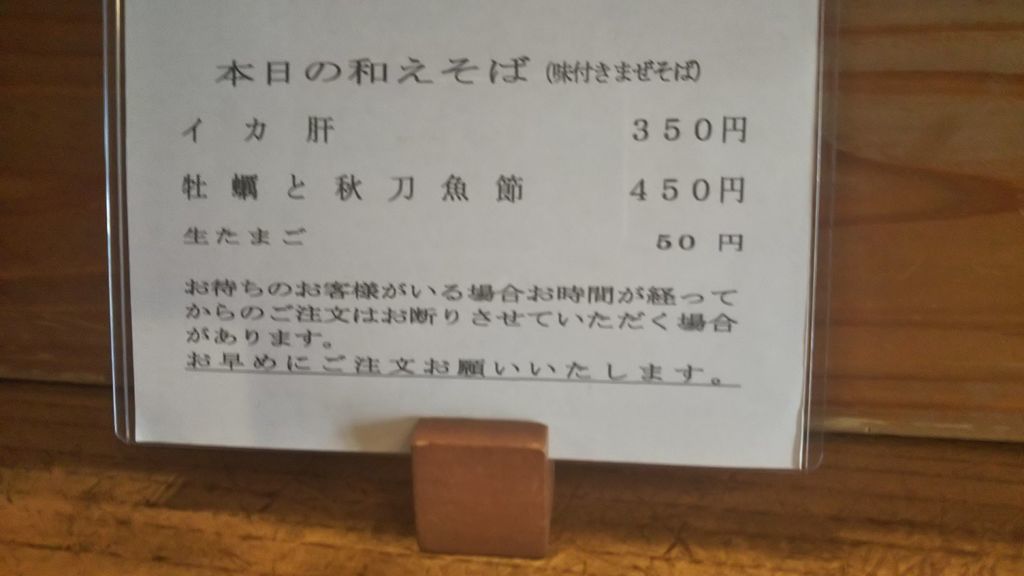 本日の和えそば(味付きまぜそば)
イカ肝 350円
牡蠣と秋刀魚節 450円
生たまご 50円
お待ちのお客様がいる場合お時間が経って
からのご注文はお断りさせていただく場合
があります。
お早めにご注文お願いいたします。